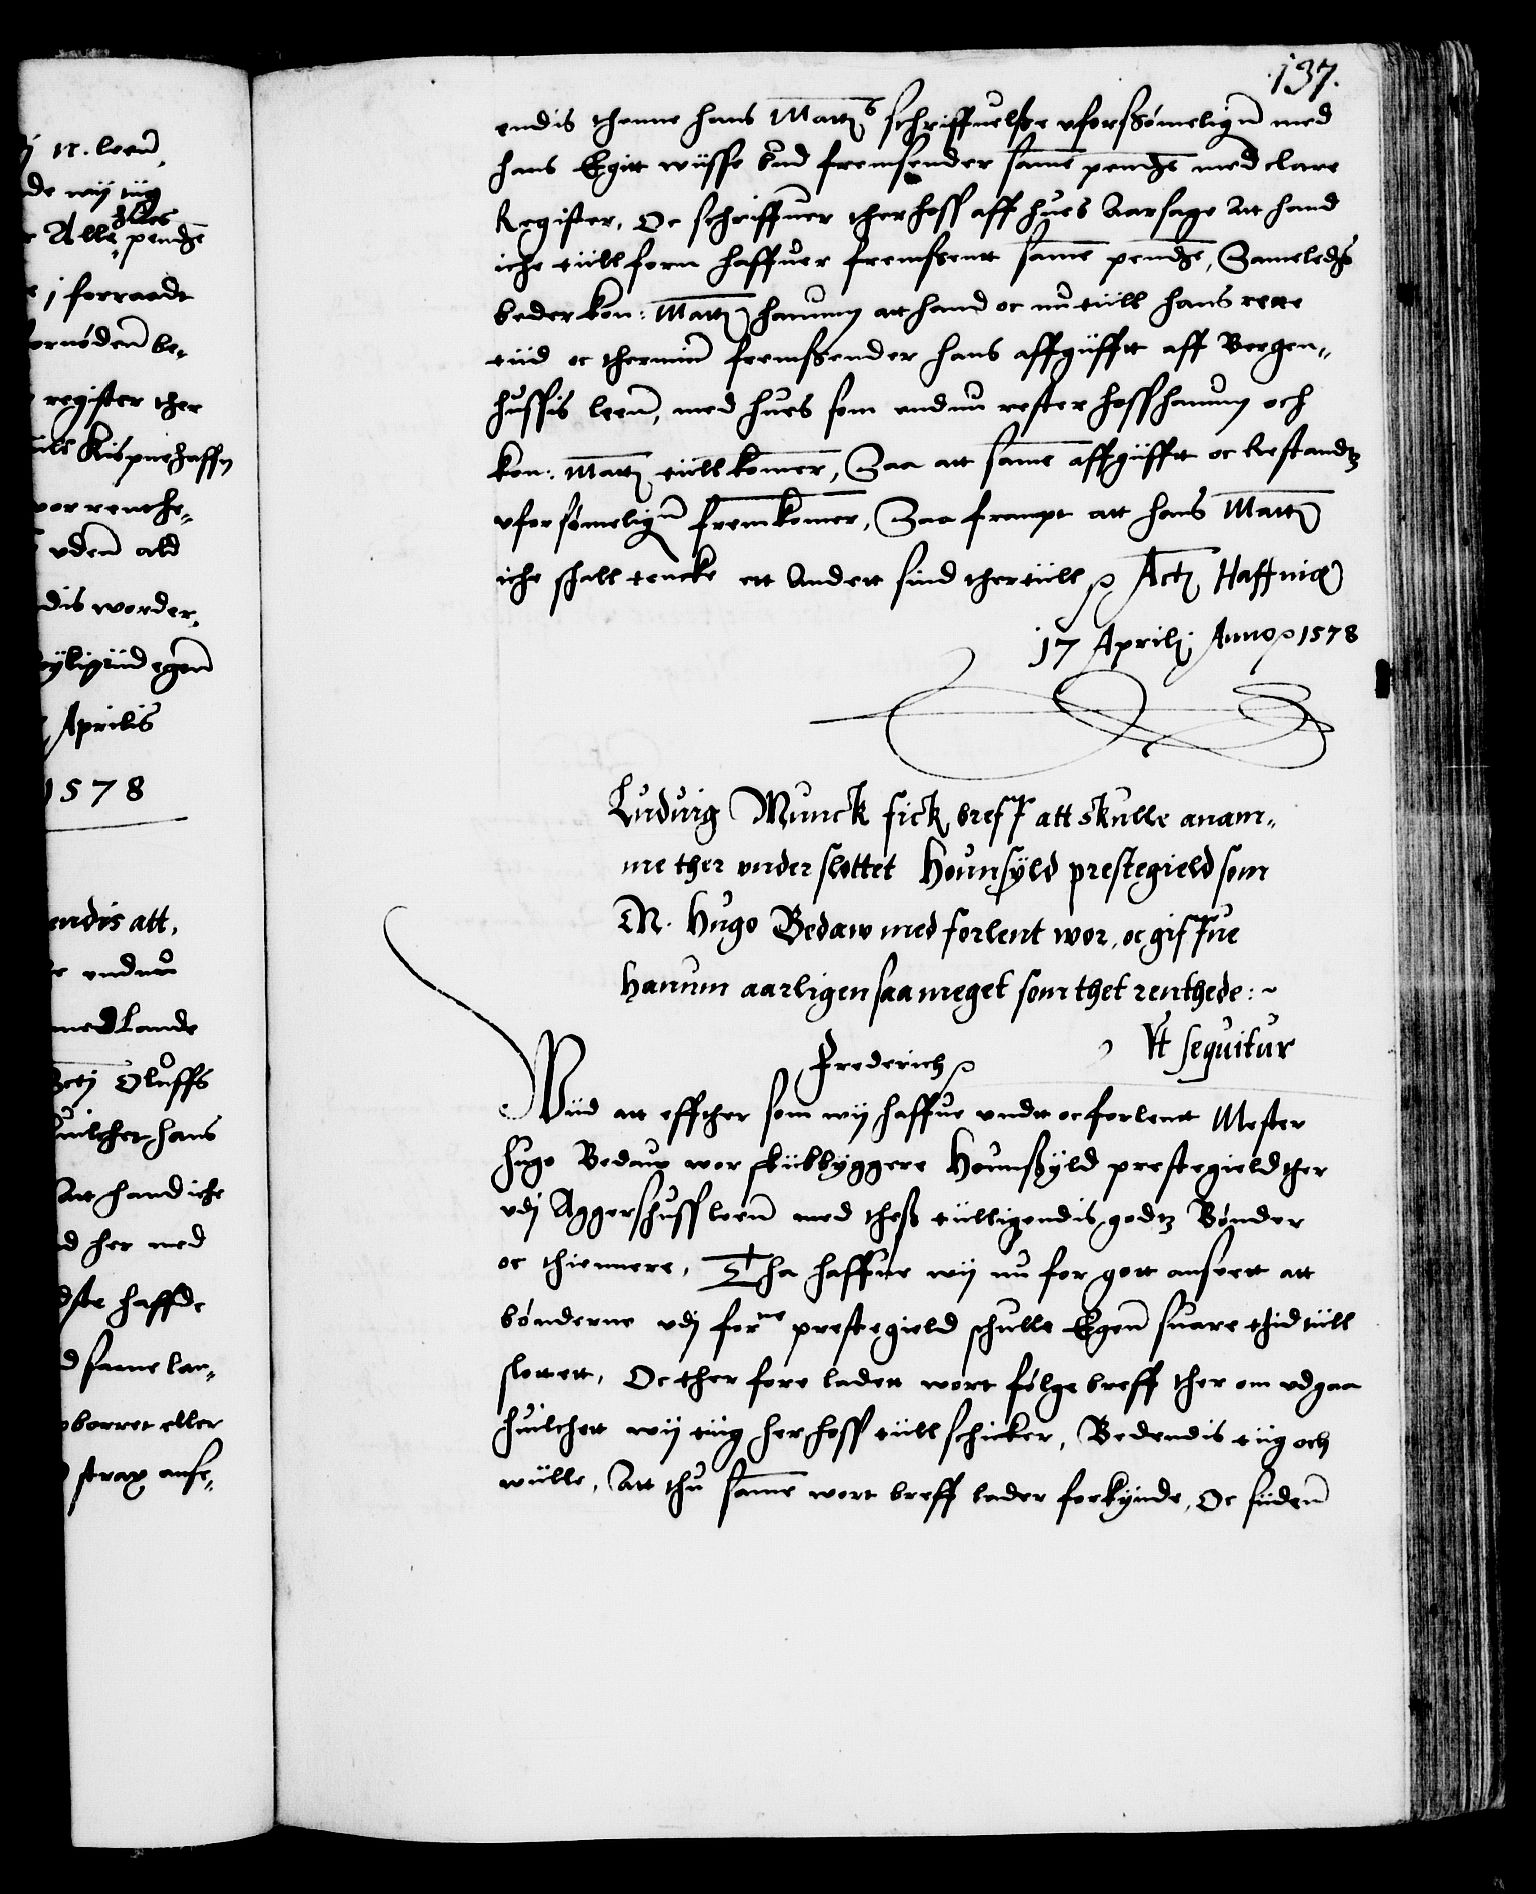 137.
endis thenne hans Matt:s schriffuelsse uforssømeligñ med
hans Egitt wüsse bud fremsender samē pendge med clare
Register, Oc schriffuer therhoss aff hues Aarsage Att hand
icke tüll forn haffuer fremssentt samē pendge, Sameledgs
beder kon: Matt: hanum att hand oc nu tüll hans rette
tüd oc thermin fremssender hans affgüfft aff Bergen-
hussis leen, med hues som endnu rester hoss hanum och
kon: Matt: tüllkomer, Saa att samē affgüfft oc Restandtz
uforsømeligñ fremkomer, Saa frampt att hans Matt:
icke skall tencke ett Andett sind thertüll Act: Haffniæ
17 Aprilj Anno 1578
Luduig Munck fick breff att skulle anam-
me ther under slottet Hounsyld prestegield som
M. Hugo Bedaw med forlent wor, oc giffue
hanum aarligen saa meget som thet renthede:~
Vt sequitur
Frederich
Wiid att effther som wij haffue undtt oc forlentt Mester
Hugo Bedaux wor skübbyggere Hounssyld prestegield ther
udj Aggershuss leen med thess tülligendis godtz Bønder
oc thiennere, Tha haffue wij nu for gott anseett att
bønderne udj forne prestegield schulle Egen suare thid tüll
slottett, Oc ther fore ladett wort følge breff ther om udgaa
huilchett wij tüg her hoss tüll schicker, Bedendis tüg och
wülle, Att thu samē wort breff lader forkynde, Oc siiden
j N. leen,
de wij tüg
hues
Alle pendge
j forraadt
fornøden be-
register ther
Kiøpnehaffn
for renthe-
uden ald
dis worder,
egen
Aprilis
1578
endis att,
endnu
med Lande
Oluffs
huilchet hans
Att hand icke
d her med
dste haffde
d same len-
oborret eller
strax anse-